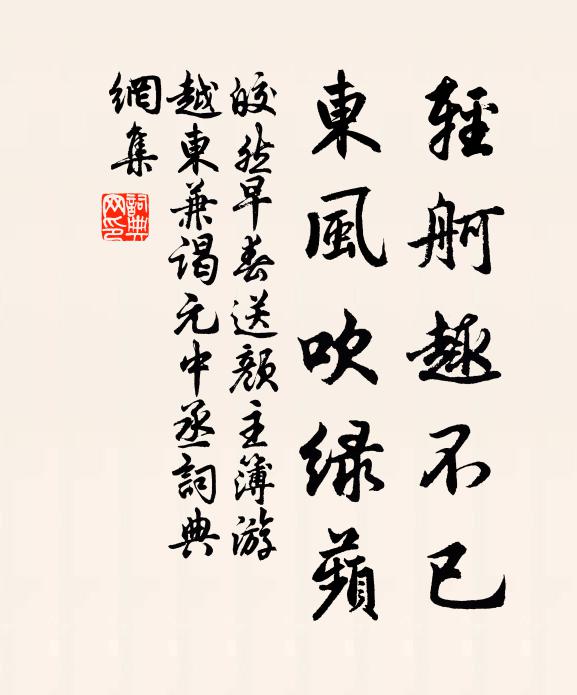 輕舸趣不已
東風吹綠蘋
皎然早春送顏主簿游
越東兼謁元中丞詞典
網集
詞典網印